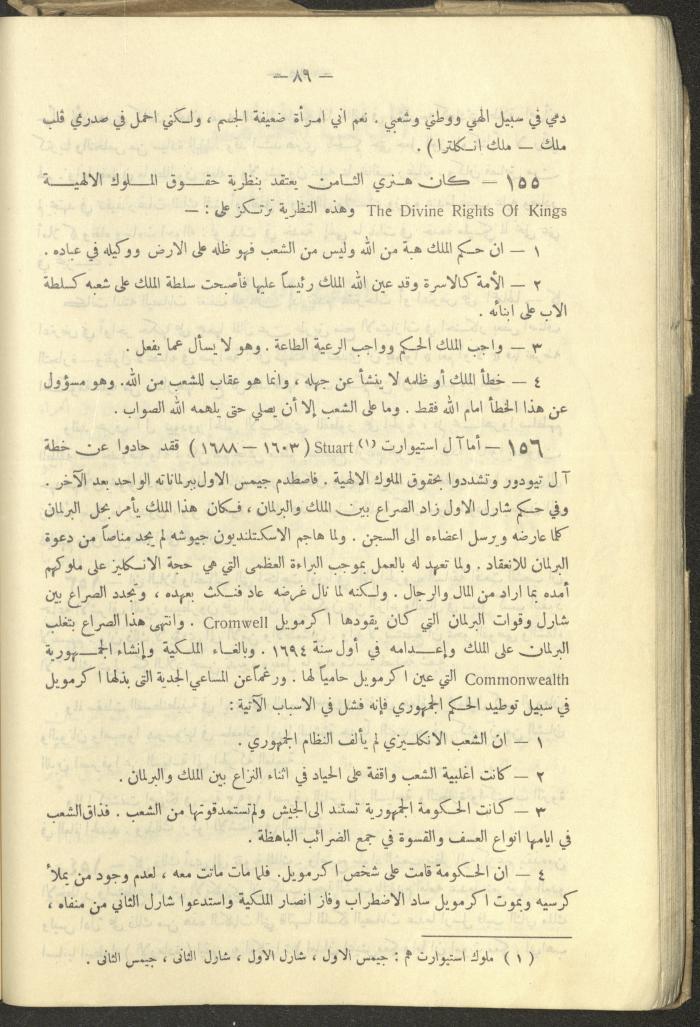 — ٨٩ —
دمي في سبيل الهي ووطني وشعبي . نعم اني امرأة ضعيفة الجسم ، ولكني احمل في صدري قلب
ملك — ملك انكلترا ) .
١٥٥ — كان هنري الثامن يعتقد بنظرية حقوق الملوك الالهية
The Divine Rights Of Kings وهذه النظرية ترتكز على : —
١ — ان حكم الملك هبة من الله وليس من الشعب فهو ظله على الارض ووكيله في عباده .
٢ — الأمة كالاسرة وقد عين الله الملك رئيساً عليها فأصحت سلطة الملك على شعبه كسلطة
الاب على ابنائه .
٣ — واجب الملك الحكم وواجب الرعية الطاعة . وهو لا يسأل عما يفعل .
٤ — خطأ الملك أو ظلمه لا ينشأ عن جهله ، وانما هو عقاب للشعب من الله. وهو مسؤول
عن هذا الخطأ امام الله فقط . وما على الشعب إلا أن يصلي حتى يلهمه الله الصواب .
١٥٦ — أما آل استيوارت (١) Stuart ( ١٦٠٣ — ١٦٨٨ ) فقد حادوا عن خطة
آل تيودور وتشددوا بحقوق الملوك الالهية . فاصطدم جيمس الاول ببرلماناته الواحد بعد الآخر .
وفي حكم شارل الاول زاد الصراع بين الملك والبرلمان ، فكان هذا الملك يأمر بحل البرلمان
كلما عارضه ويرسل اعضاءه الى السجن . ولما هاجم الاسكتلنديون جيوشه لم يجد مناصاً من دعوة
البرلمان للانعقاد . ولما تعهد له بالعمل بموجب البراءة العظمى التي هي حجة الانكليز على ملوكهم
أمده بما اراد من المال والرجال . ولكنه لما نال غرضه عاد فنكث بعهده ، وتجدد الصراع بين
شارل وقوات البرلمان التي كان يقودها اكرمويل Cromwell . وانتهى هذا الصراع بتغلب
البرلمان على الملك وإعدامه في أول سنة ١٦٩٤ . وبالغاء الملكية وإنشاء الجمهورية
Commonwealth التي عين اكرمويل حامياً لها . ورغماً عن المساعي الجدية التى بذلها اكرمويل
في سبيل توطيد الحكم الجمهوري فإنه فشل في الاسباب الآتية :
١ — ان الشعب الانكليزي لم يألف النظام الجمهوري .
٢ — كانت اغلبية الشعب واقفة على الحياد في اثناء النزاع بين الملك والبرلمان .
٣ — كانت الحكومة الجمهورية تستند الى الجيش ولم تستمد قوتها من الشعب . فذاق الشعب
في ايامها انواع العسف والقسوة في جمع الضرائب الباهظة .
٤ — ان الحكومة قامت على شخص اكرمويل. فلما مات ماتت معه ، لعدم وجود من يملأ
كرسيه وبموت اكرمويل ساد الاضطراب وفاز انصار الملكية واستدعوا شارل الثاني من منفاه ،
( ١ ) ملوك استيوارت هم : جيمس الاول ، شارل الاول ، شارل الثانى ، جيمس الثانى .